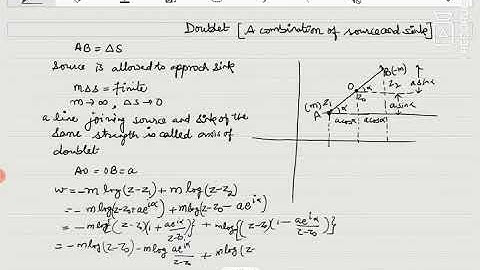 Doublet [A combination of source and sink]
AB = ΔS
Source is allowed to approch sink
mΔs = finite
m → ∞, Δs → 0
a line joining source and sink of the
same strength is called axis of
doublet
AO = OB = a
w = -m log(z-z₁) + m log(z-z₂)
= -m log(z-z₀+ae^{iα}) + m log(z-z₀-ae^{iα})
= -m log{(z-z₀)(1+ae^{iα}/z-z₀)} + m log{(z-z₀)(1-ae^{iα}/z-z₀)}
= -m log(z-z₀) - m log ae^{iα}/z-z₀ + m log(z-
B(-m)
z₂
a sinα
O
α
z₀
a sinα
(m) z₁
A
α
a cosα
a cosα